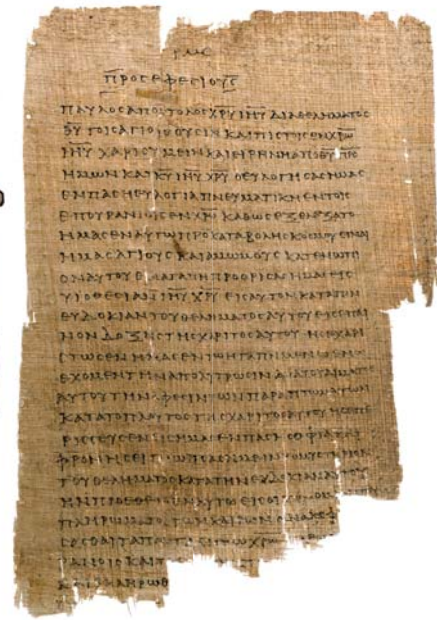 ρμϛ
ΠΡΟϹ ΕΦΕϹΙΟΥϹ
ΠΑΥΛΟϹ ΑΠΟϹΤΟΛΟϹ ΧΡΥ ΙΗΥ ΔΙΑ ΘΕΛΗΜΑΤΟϹ
ΘΥ ΤΟΙϹ ΑΓΙΟΙϹ ΟΥϹΙΝ ΚΑΙ ΠΙϹΤΟΙϹ ΕΝ ΧΡΩ
ΙΗΥ ΧΑΡΙϹ ΥΜΕΙΝ ΚΑΙ ΕΙΡΗΝΗ ΑΠΟ ΘΥ ΠΡϹ
ΗΜΩΝ ΚΑΙ ΚΥ ΙΗΥ ΧΡΥ Ο ΕΥΛΟΓΗϹΑϹ ΗΜΑϹ
ΕΝ ΠΑϹΗ ΕΥΛΟΓΙΑ ΠΝΕΥΜΑΤΙΚΗ ΕΝ ΤΟΙϹ
ΕΠΟΥΡΑΝΙΟΙϹ ΕΝ ΧΡΩ ΚΑΘΩϹ ΕΞΕΛΕΞΑΤΟ
ΗΜΑϹ ΕΝ ΑΥΤΩ ΠΡΟ ΚΑΤΑΒΟΛΗϹ ΚΟϹΜΟΥ ΕΙΝΑΙ
ΗΜΑϹ ΑΓΙΟΥϹ ΚΑΙ ΑΜΩΜΟΥϹ ΚΑΤΕΝΩΠΙ
ΟΝ ΑΥΤΟΥ ΕΝ ΑΓΑΠΗ ΠΡΟΟΡΙϹΑϹ ΗΜΑϹ ΕΙϹ
ΥΙΟΘΕϹΙΑΝ ΙΗΥ ΧΡΥ ΕΙϹ ΑΥΤΟΝ ΚΑΤΑ ΤΗΝ
ΕΥΔΟΚΙΑΝ ΤΟΥ ΘΕΛΗΜΑΤΟϹ ΑΥΤΟΥ ΕΙϹ ΕΠΑΙ
ΝΟΝ ΔΟΞΗϹ ΤΗϹ ΧΑΡΙΤΟϹ ΑΥΤΟΥ ΗϹ ΕΧΑΡΙ
ΤΩϹΕΝ ΗΜΑϹ ΕΝ ΤΩ ΗΓΑΠΗΜΕΝΩ ΕΝ Ω
ΕΧΟΜΕΝ ΤΗΝ ΑΠΟΛΥΤΡΩϹΙΝ ΔΙΑ ΤΟΥ ΑΙΜΑΤΟϹ
ΑΥΤΟΥ ΤΗΝ ΑΦΕϹΙΝ ΤΩΝ ΠΑΡΑΠΤΩΜΑΤΩΝ
ΚΑΤΑ ΤΟ ΠΛΟΥΤΟϹ ΤΗϹ ΧΑΡΙΤΟϹ ΑΥΤΟΥ ΗϹ ΕΠΕ
ΡΙϹϹΕΥϹΕΝ ΕΙϹ ΗΜΑϹ ΕΝ ΠΑϹΗ ϹΟΦΙΑ ΚΑΙ
ΦΡΟΝΗϹΕΙ ΓΝΩΡΙϹΑϹ ΗΜΕΙΝ ΤΟ ΜΥϹΤΗΡΙΟΝ
ΤΟΥ ΘΕΛΗΜΑΤΟϹ ΚΑΤΑ ΤΗΝ ΕΥΔΟΚΙΑΝ ΑΥΤΟΥ
ΗΝ ΠΡΟΕΘΕΤΟ ΕΝ ΑΥΤΩ ΕΙϹ
ΠΛΗΡΩΜΑΤΟϹ ΤΩΝ ΚΑΙΡΩΝ
ϹΑϹΘΑΙ ΤΑ ΠΑΝΤΑ ΕΝ ΤΩ ΧΡΩ
ΡΑΝΟΙϹ ΚΑΙ Τ